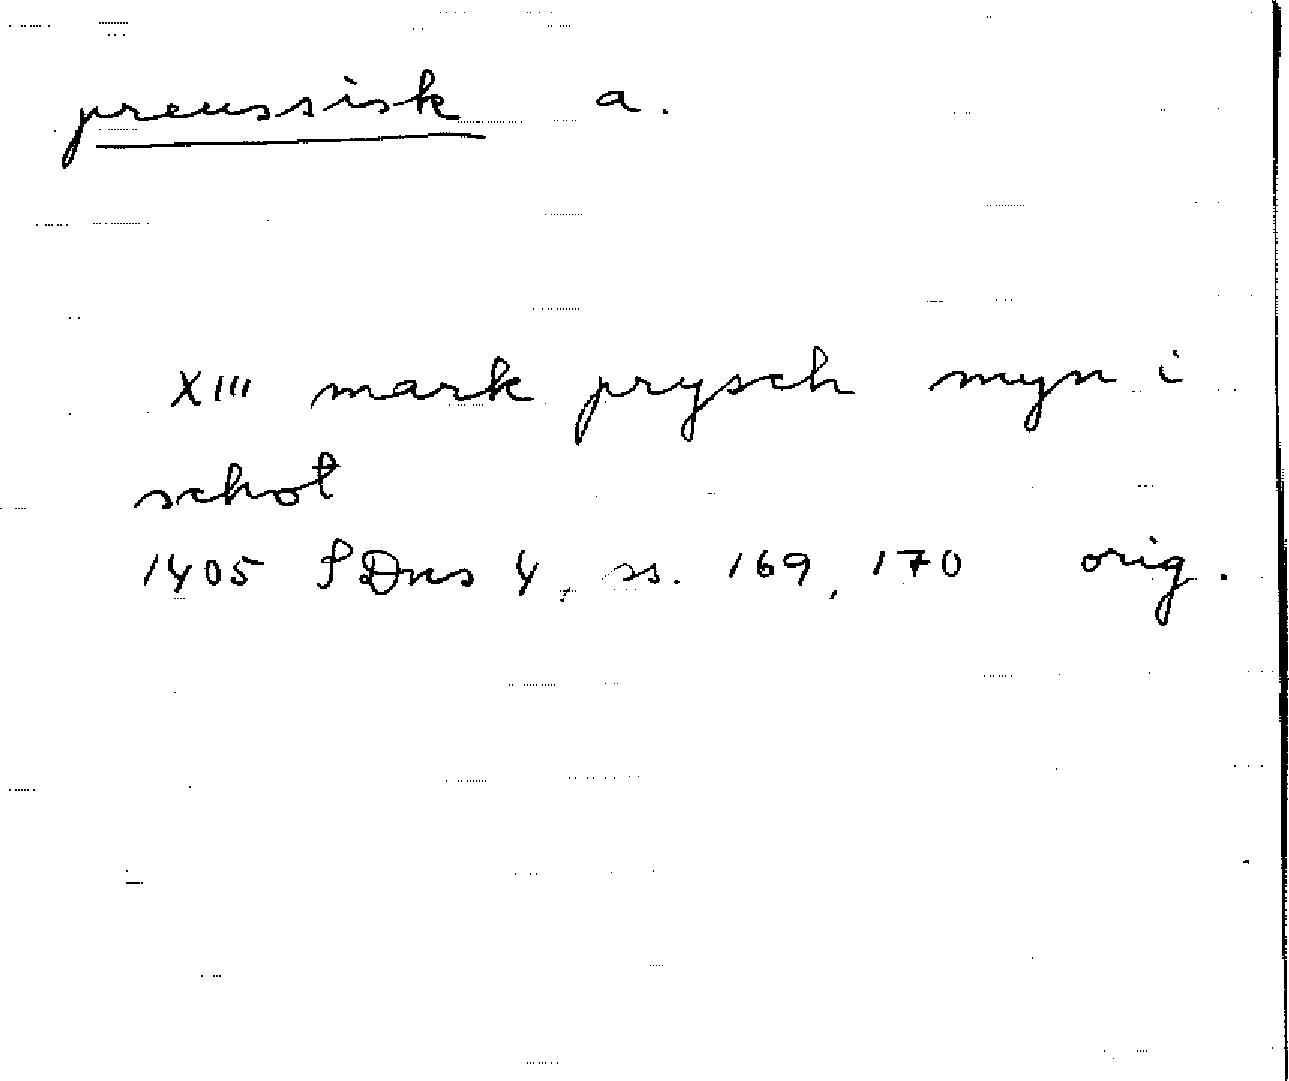 preussisk a.
XIII mark prysch myn i
schot
1405 SDns 4, ss. 169, 170 orig.